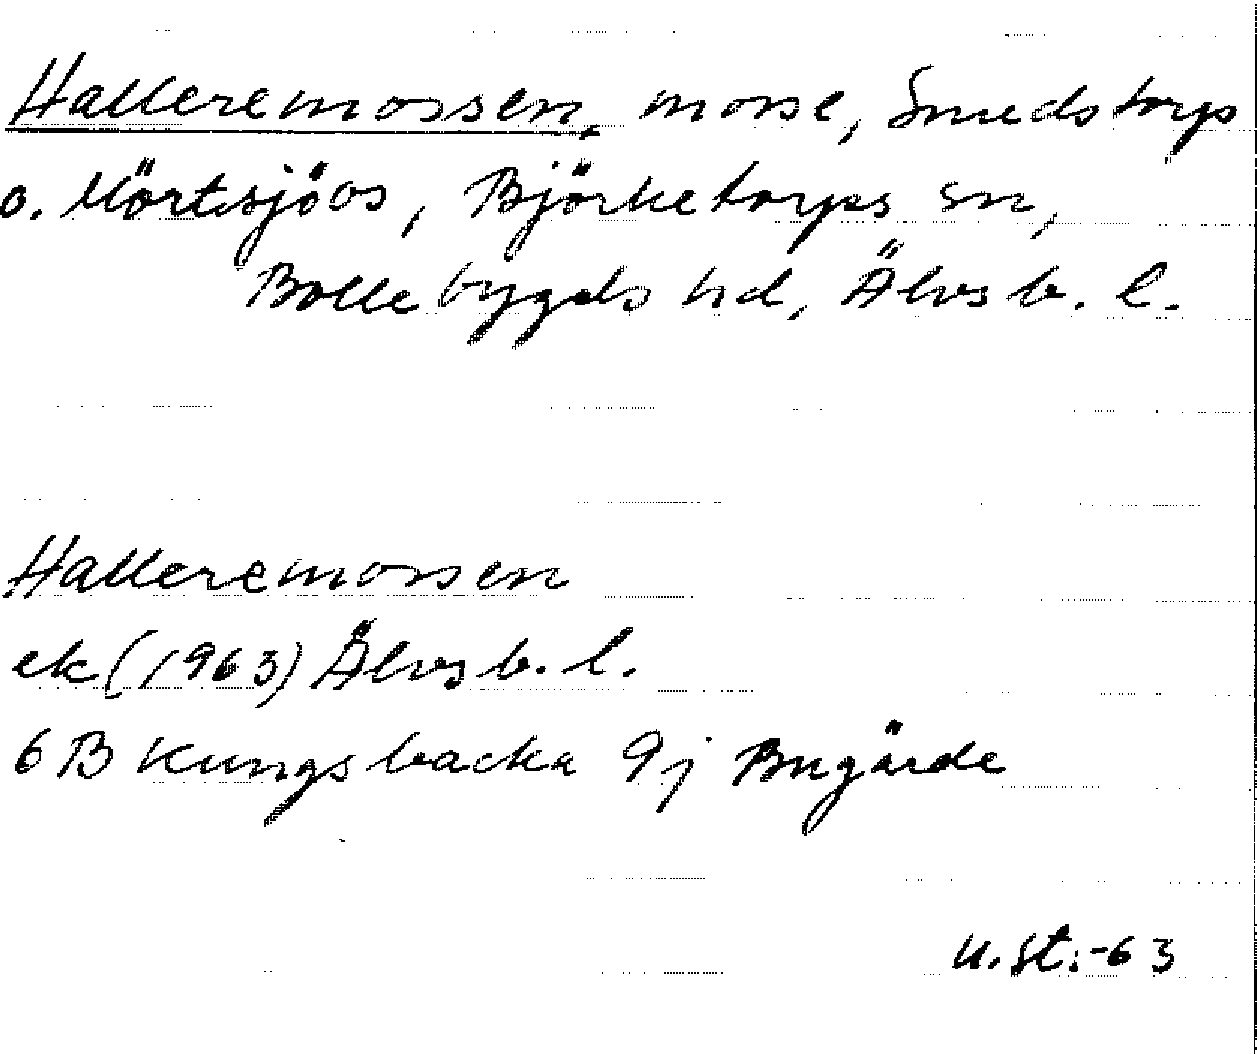 Halleremossen, mosse, Smedstorps
o. Mörtsjöos, Björketorps sn,
Bollebygds hd, Älvsb. l.
Halleremossen
ek (1963) Älvsb. l.
6B Kungsbacka 9j Bugärde
u. St. -63